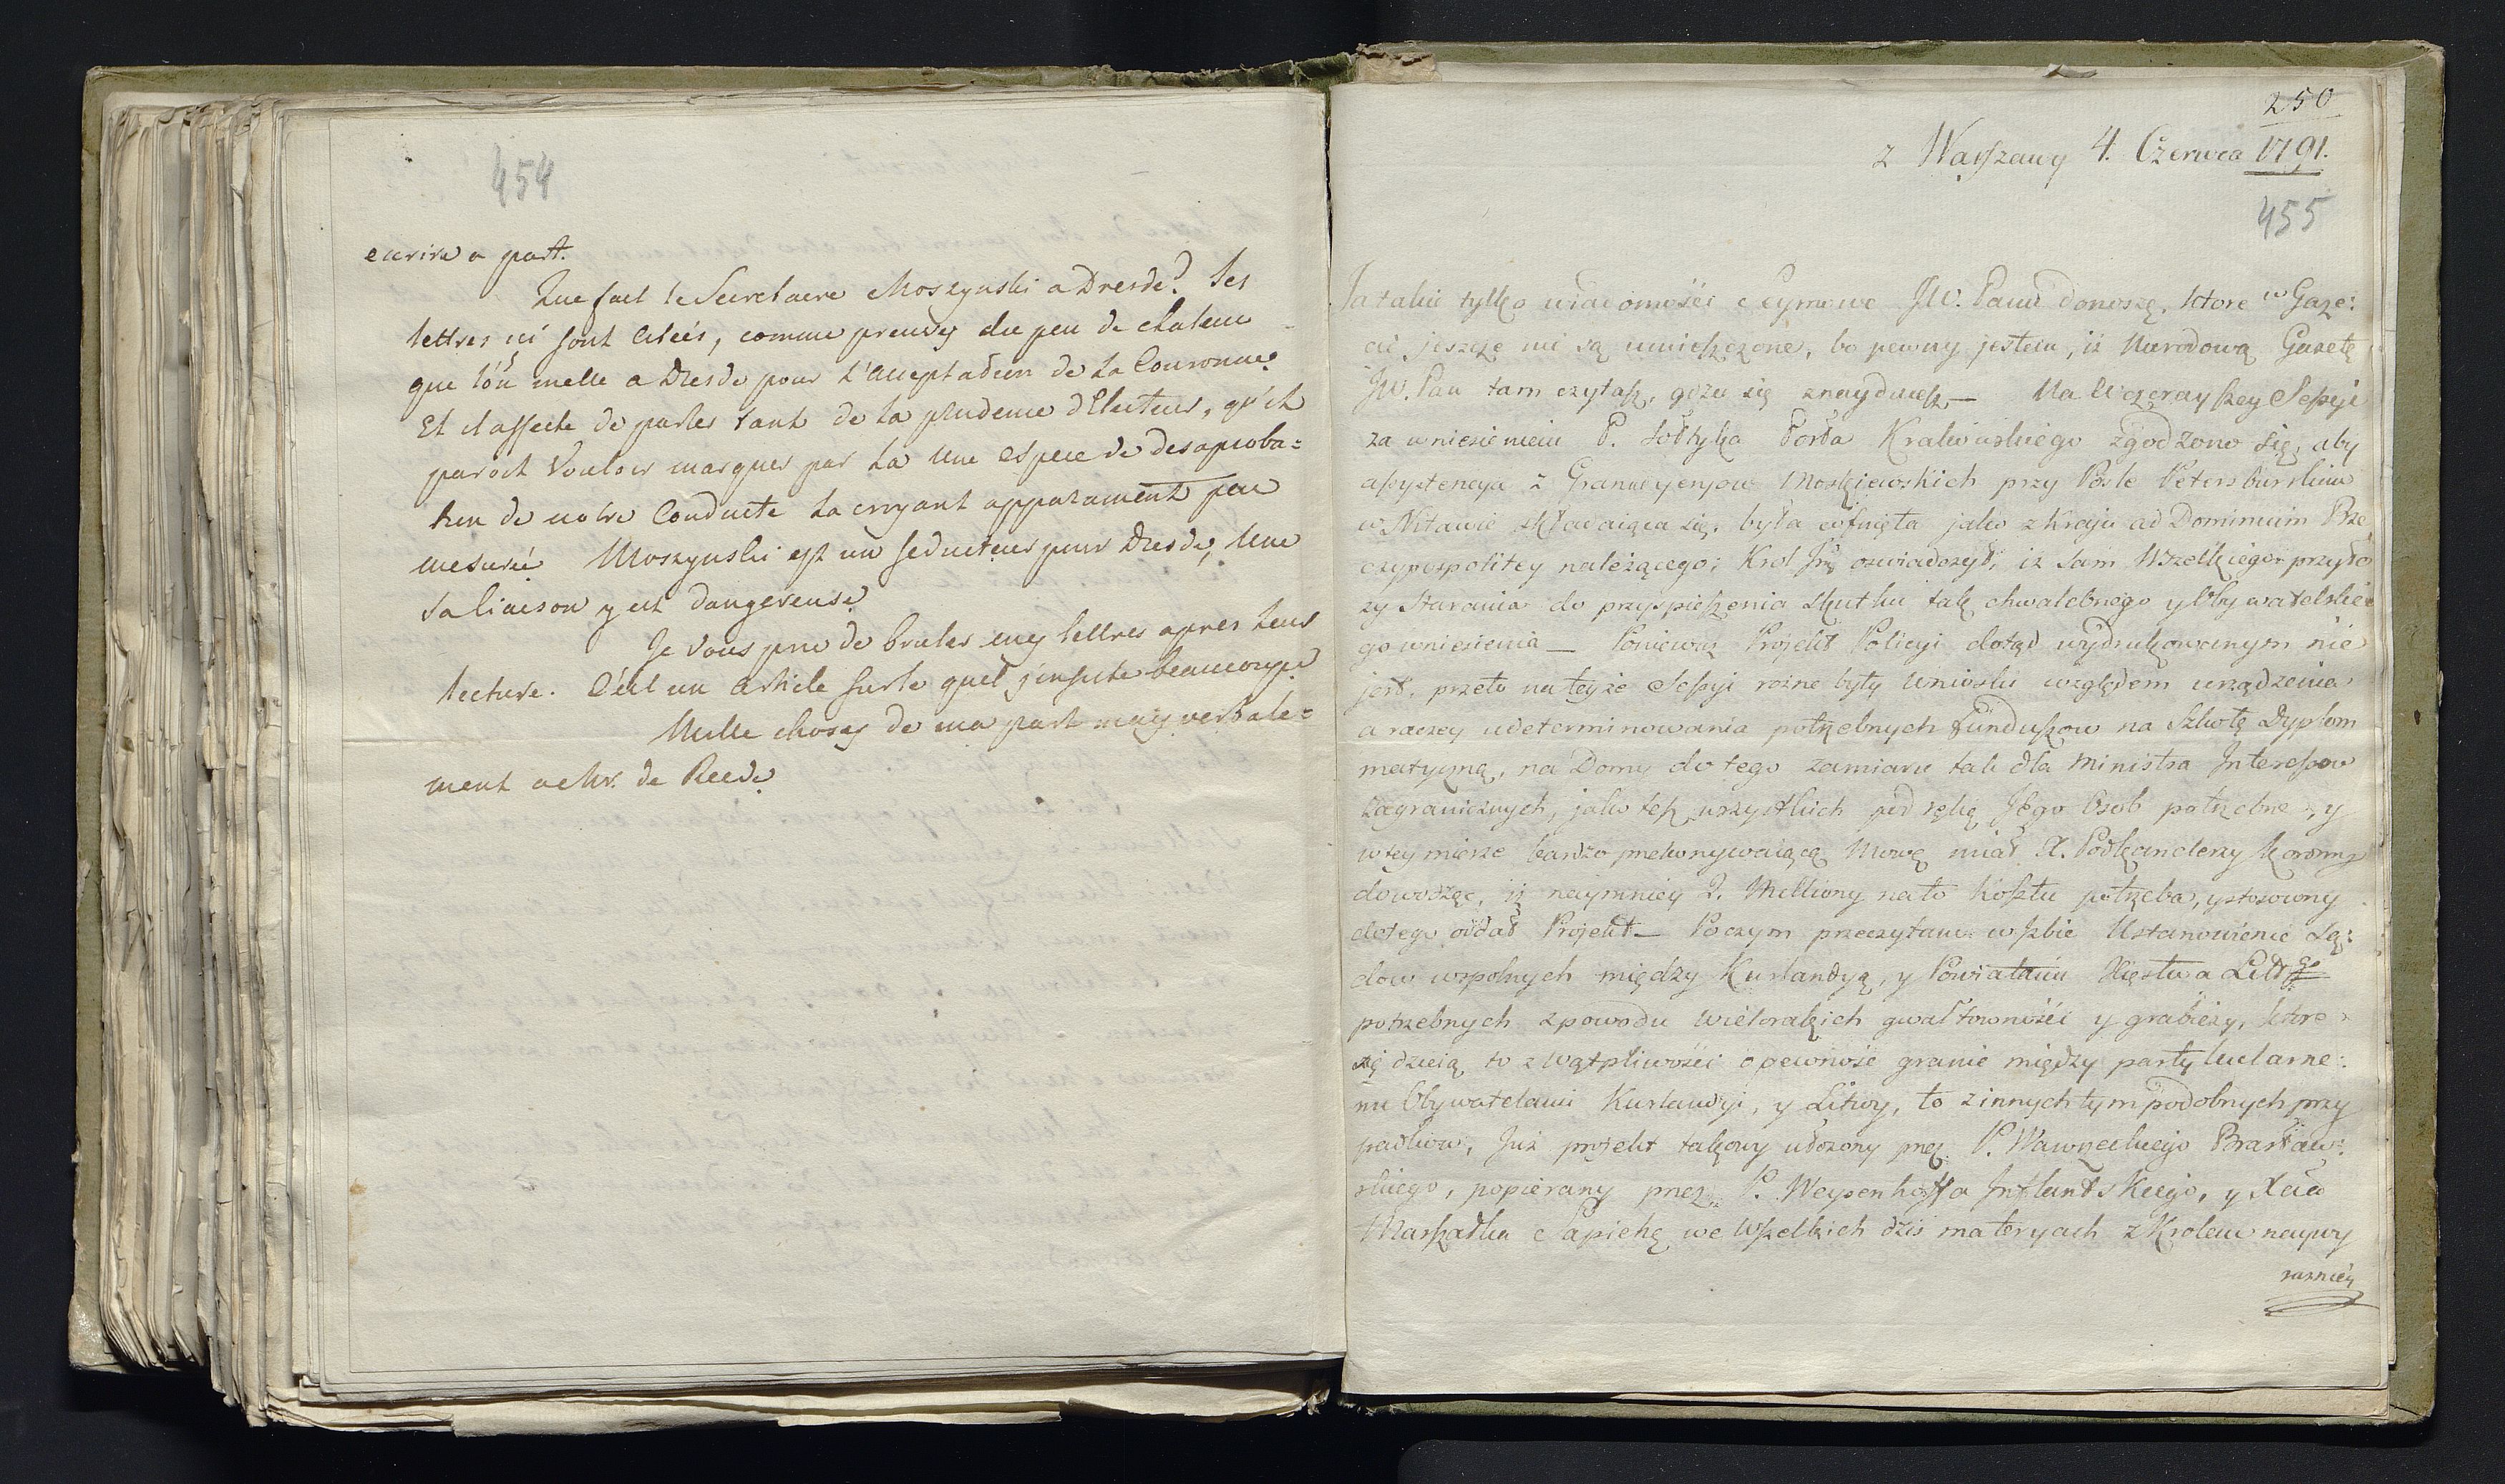 454
ecrire a part.
Que fait le Secretaire Moszynski a Dresde? Ses
lettres ici sont citées, comme preuves du peu de chaleur
que l'on melle a Dresde pour l'acceptation de la Couronne.
Et il affecte de parler tant de la prudence d'Electeur, qu'il
paroit vouloir marquer par la une espece de desaproba=
tion de notre Conduite la croyant apparament peu
mesurée Moszynski est un seducteur pour Dresde, une
sa liaison y est dangereuse
Je vous prie de bruler mes lettres apres leur
lecture. C'est un article sur le quel j'insiste beaucoup.
Mille choses de ma part mais verbale=
ment a Mr. de Reede
250
z Warszawy 4. Czerwca 1791.
455
Ja takie tylko wiadomości Seymowe JW. Panu donoszę, ktore w Gaze:
cie jeszcze nie są umieszczone, bo pewny jestem, iż Narodową Gazetę
JW. Pan tam czytasz, gdzie się znayduiesz. — Na Wczorayszey Sessyi
za wniesieniem P. Sołtyka Posła Krakowskiego zgodzono się, aby
assystencya z Granadyerow Moskiewskich przy Pośle Petersburskim
w Mitawie składaiąca się, była cofnięta jako z kraju ad Dominium Rze
czypospolitey należącego; Krol Jmć oswiadczył, iż sam Wszelkiego przyło
ży starania do przyspieszenia skutku tak chwalebnego y Obywatelskie=
go wniesienia — Poniewasz Projekt Policyi dotąd wydrukowanym nie
jest, przeto na teyże Sessyi rożne były wnioski względem urządzenia
a raczey udeterminowania potrzebnych funduszow na Szkołę Dyplom
matyczną, na Domy do tego zamiaru tak dla Ministra Interessow
zagranicznych, jako też wszystkich pod ręką Jego Osob potrzebne, y
w tey mierze bardzo przekonywaiącą Mowę miał X. Podkanclerzy Koronny
dowodząc, iż naymniey 2. Milliony na to Kosztu potrzeba, y stosowny
do tego oddał Projekt — Poczym przeczytane w Izbie Ustanowienie Są:
dow wspolnych między Kurlandyą, y Powiatami Xięstwa Litt:go
potrzebnych z powodu wielorakich gwałtowności y grabieży, ktore
się dzieią to z wątpliwości o pewność granic między partykularne:
mi Obywatelami Kurlandyi, y Litwy, to z innych tym podobnych przy
padkow, Już projekt takowy ułożony przez P. Wawrzeckiego Brasław:
skiego, popierany przez P. Weysenhoffa Inflantskiego, y Xcia
Marszałka Sapiehę we Wszelkich dziś materyach z Krolem naywy
razniey